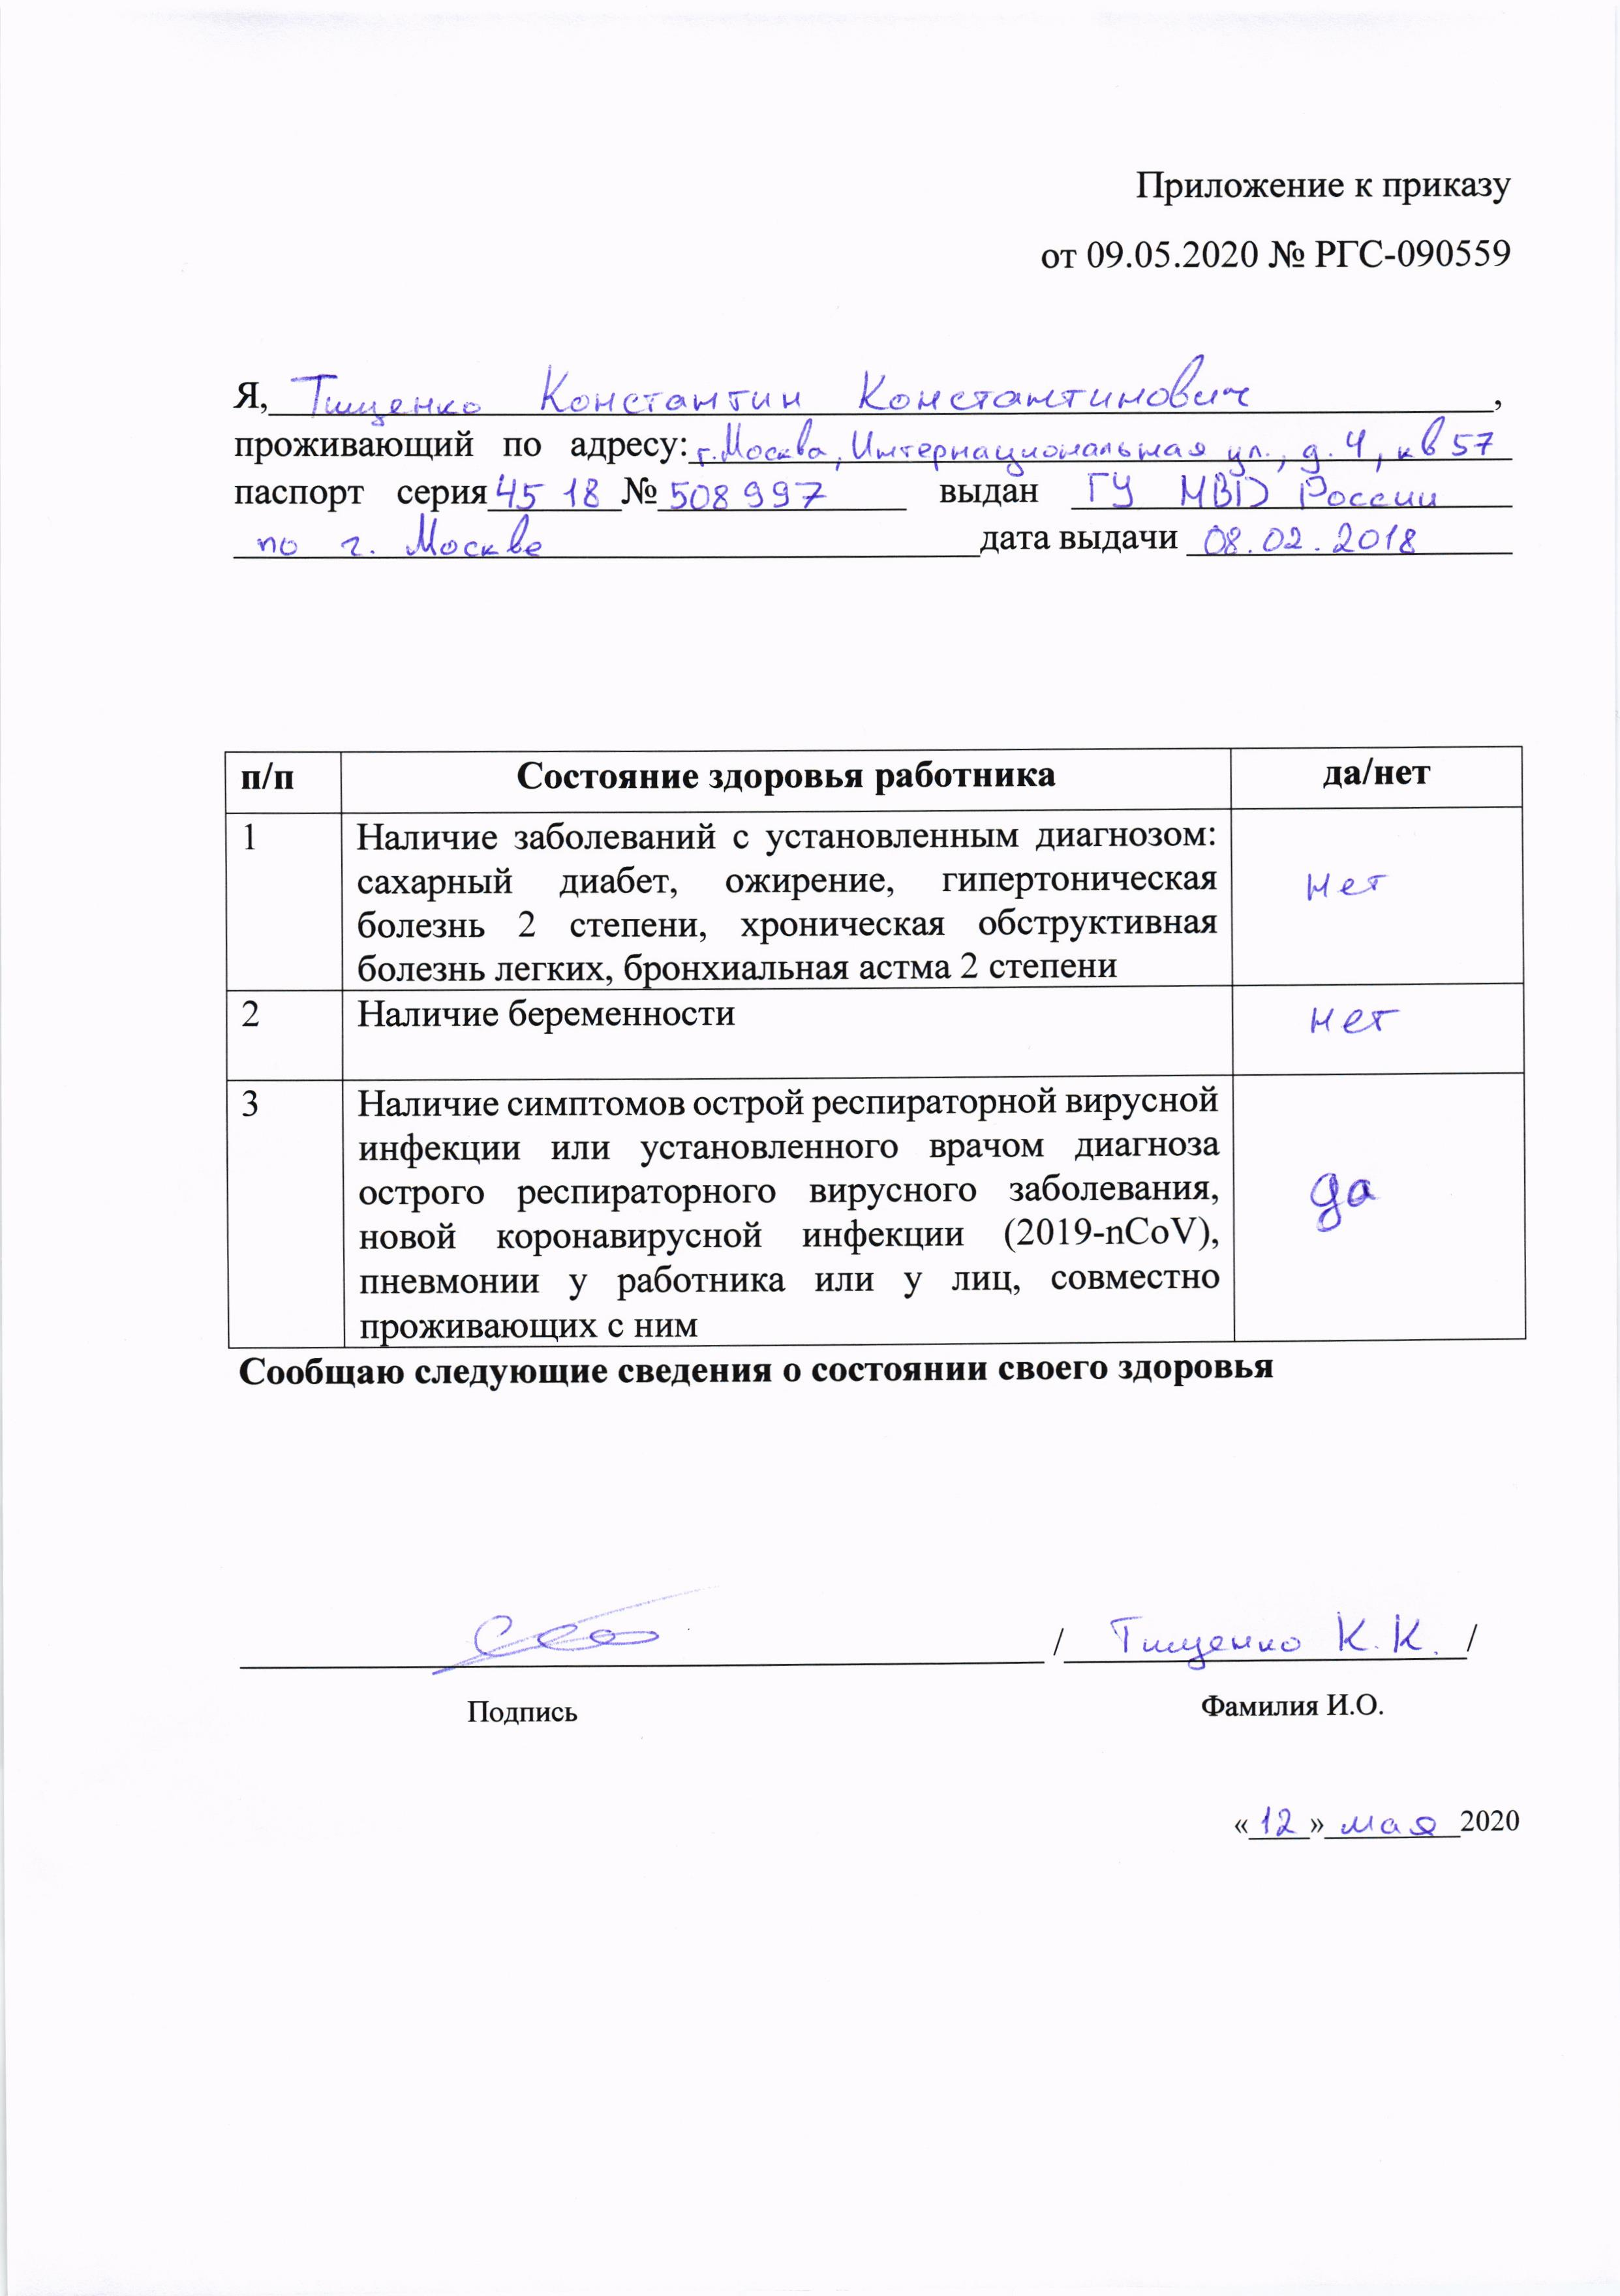 Приложение к приказу
от 09.05.2020 № РГС-090559
Я, Тищенко Константин Константинович,
проживающий по адресу: г. Москва, Интернациональная ул., д. 4, кв 57
паспорт серия 45 18 № 508997 выдан ГУ МВД России
по г. Москве дата выдачи 08.02.2018
п/п Состояние здоровья работника да/нет
1 Наличие заболеваний с установленным диагнозом:
сахарный диабет, ожирение, гипертоническая
болезнь 2 степени, хроническая обструктивная
болезнь легких, бронхиальная астма 2 степени
нет
2 Наличие беременности нет
3 Наличие симптомов острой респираторной вирусной
инфекции или установленного врачом диагноза
острого респираторного вирусного заболевания,
новой коронавирусной инфекции (2019-nCoV),
пневмонии у работника или у лиц, совместно
проживающих с ним
да
Сообщаю следующие сведения о состоянии своего здоровья
/ Тищенко К.К. /
Подпись Фамилия И.О.
«12» мая 2020